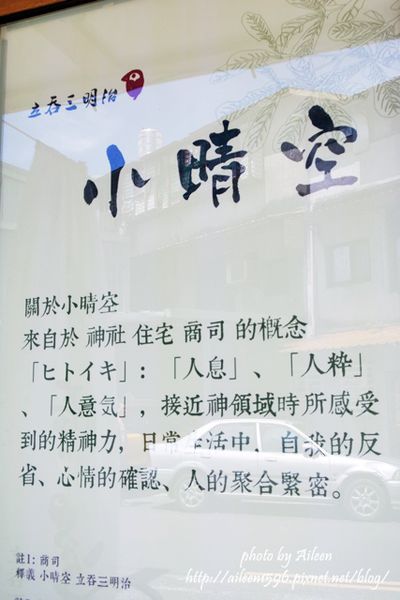 立吞三明治
小晴空
關於小晴空
來自於 神社 住宅 商司 的概念
「ヒトイキ」：「人息」、「人粋」
、「人意気」，接近神領域時所感受
到的精神力，日常生活中，自我的反
省、心情的確認、人的聚合緊密。
註1: 商司
釋義 小晴空 立吞三明治
photo by Aileen
http://aileen1596.pixnet.net/blog/